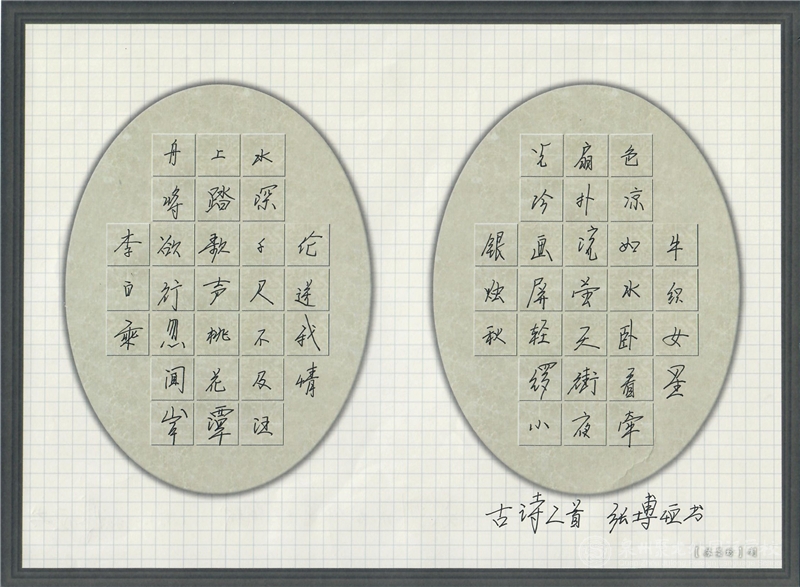 李白乘
舟将欲行忽闻岸
上踏歌声桃花潭
水深千尺不及汪
伦送我情
银烛秋
光冷画屏轻罗小
扇扑流萤天街夜
色凉如水卧看牵
牛织女星
古诗二首 张博书